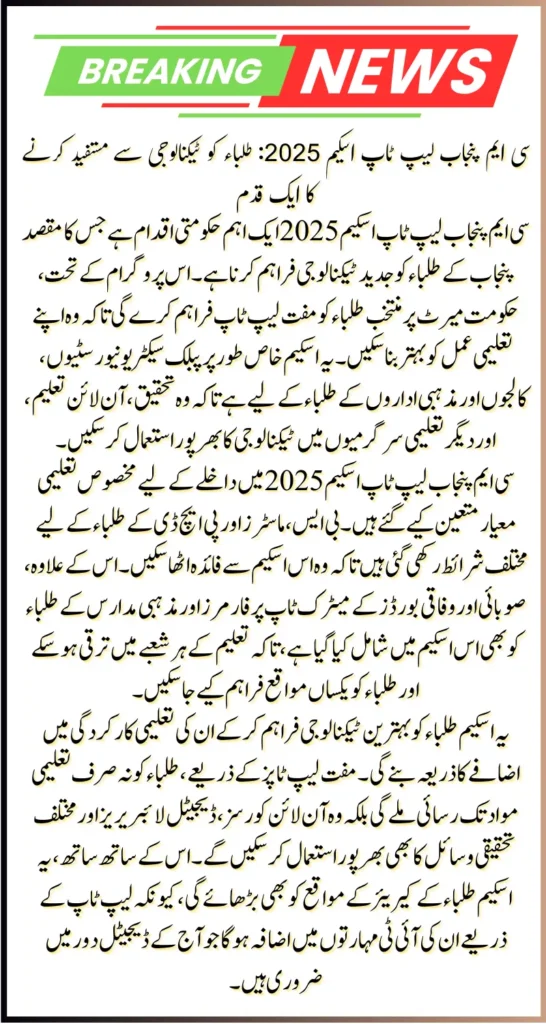 BREAKING NEWS
سی ایم پنجاب لیپ ٹاپ اسکیم 2025: طلباء کو ٹیکنالوجی سے مستفید کرنے
کا ایک قدم
سی ایم پنجاب لیپ ٹاپ اسکیم 2025 ایک اہم حکومتی اقدام ہے جس کا مقصد
پنجاب کے طلباء کو جدید ٹیکنالوجی فراہم کرنا ہے۔ اس پروگرام کے تحت،
حکومت میرٹ پر منتخب طلباء کو مفت لیپ ٹاپ فراہم کرے گی تاکہ وہ اپنے
تعلیمی عمل کو بہتر بنا سکیں۔ یہ اسکیم خاص طور پر پبلک سیکٹر یونیورسٹیوں،
کالجوں اور مذہبی اداروں کے طلباء کے لیے ہے تاکہ وہ تحقیق، آن لائن تعلیم،
اور دیگر تعلیمی سرگرمیوں میں ٹیکنالوجی کا بھرپور استعمال کر سکیں۔
سی ایم پنجاب لیپ ٹاپ اسکیم 2025 میں داخلے کے لیے مخصوص تعلیمی
معیار متعین کیے گئے ہیں۔ بی ایس، ماسٹرز اور پی ایچ ڈی کے طلباء کے لیے
مختلف شرائط رکھی گئی ہیں تاکہ وہ اس اسکیم سے فائدہ اٹھا سکیں۔ اس کے علاوہ،
صوبائی اور وفاقی بورڈز کے میٹرک ٹاپ پرفارمرز اور مذہبی مدارس کے طلباء
کو بھی اس اسکیم میں شامل کیا گیا ہے، تاکہ تعلیم کے ہر شعبے میں ترقی ہو سکے
اور طلباء کو یکساں مواقع فراہم کیے جا سکیں۔
یہ اسکیم طلباء کو بہترین ٹیکنالوجی فراہم کر کے ان کی تعلیمی کارکردگی میں
اضافے کا ذریعہ بنے گی۔ مفت لیپ ٹاپز کے ذریعے، طلباء کو نہ صرف تعلیمی
مواد تک رسائی ملے گی بلکہ وہ آن لائن کورسز، ڈیجیٹل لائبریریز اور مختلف
تحقیقی وسائل کا بھی بھرپور استعمال کر سکیں گے۔ اس کے ساتھ ساتھ، یہ
اسکیم طلباء کے کیریئر کے مواقع کو بھی بڑھائے گی، کیونکہ لیپ ٹاپ کے
ذریعے ان کی آئی ٹی مہارتوں میں اضافہ ہو گا جو آج کے ڈیجیٹل دور میں
ضروری ہیں۔